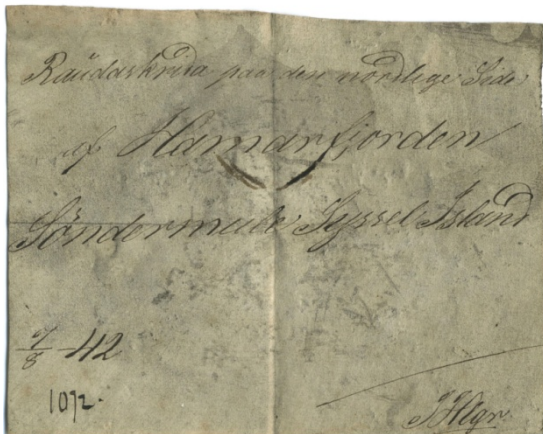 Raüdaskrida paa den nordlige Side
af Hamarfjorden
Söndermule Syssel Island
7/8 42
1072.
JHlgr.